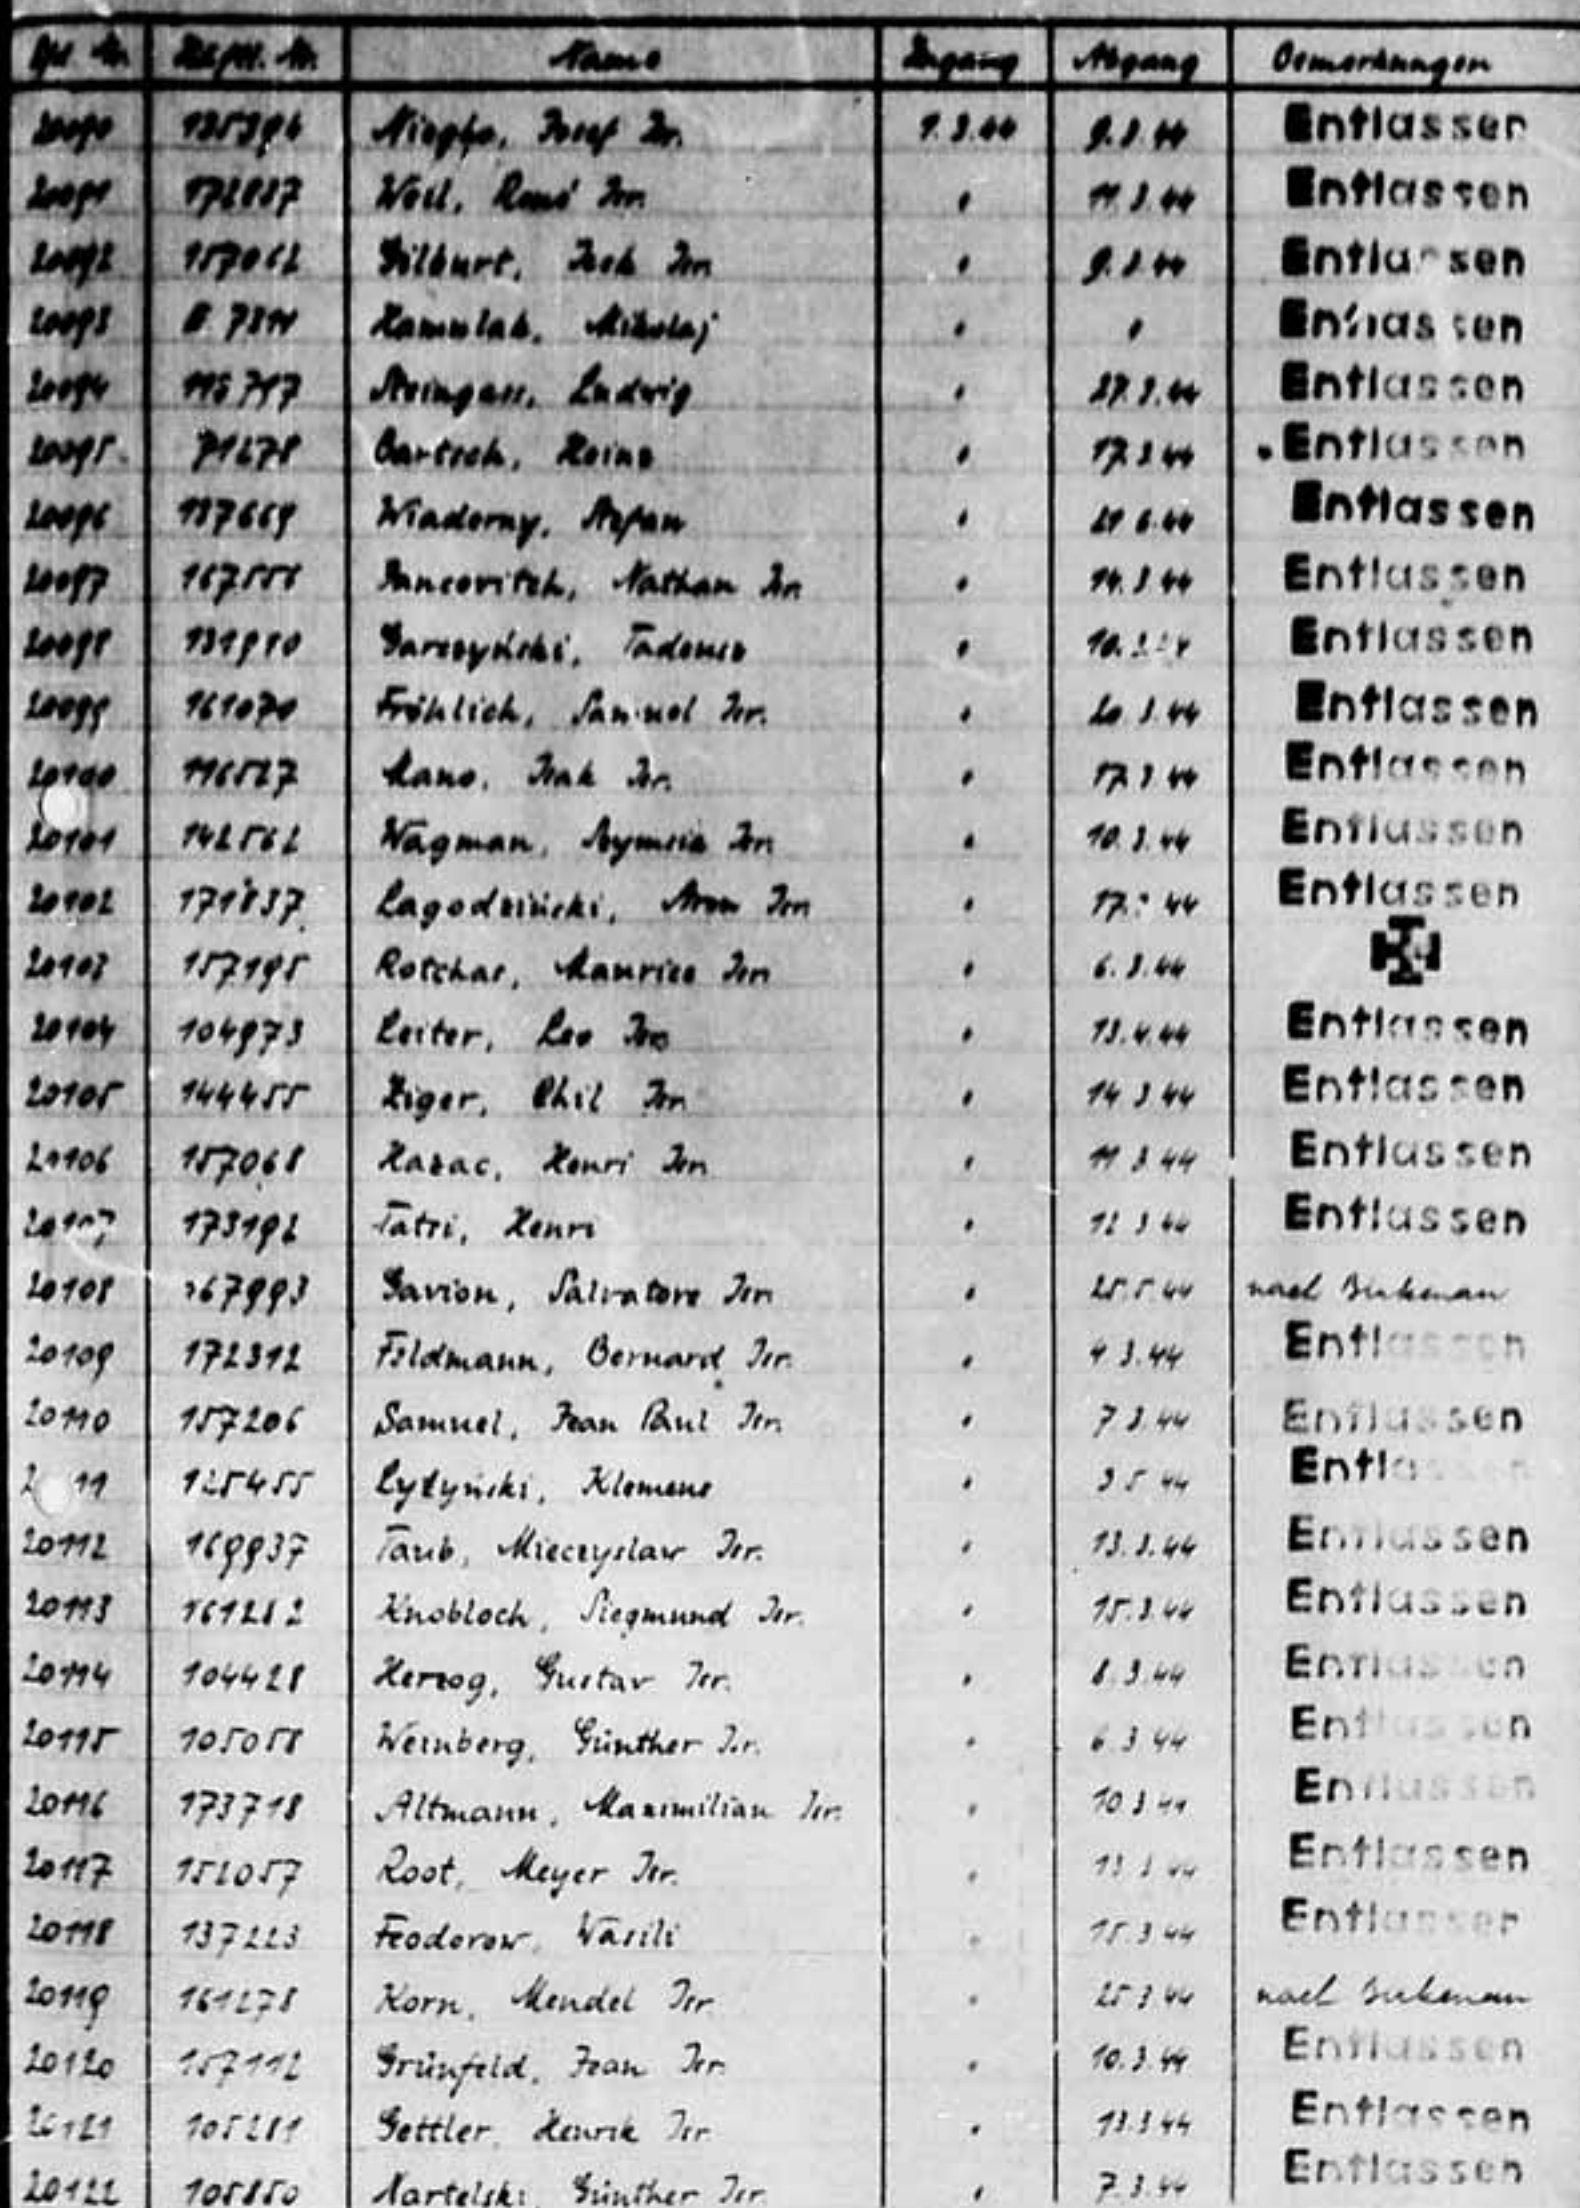 Name Zugang Abgang Bemerkungen
20090 Josef Isr. 1.3.44 9.3.44 Entlassen
20091 172887 Weil, René Isr. " 11.3.44 Entlassen
20092 157062 Gilburt, Isek Isr. " 9.3.44 Entlassen
20093 Hamulak, Mikolaj " " Entlassen
20094 Steingass, Ludwig " 27.3.44 Entlassen
20095 71278 Bartsch, Heinz " 17.3.44 Entlassen
20096 137669 Wiaderny, Stefan " Entlassen
20097 Jancovitch, Nathan Isr. " 14.3.44 Entlassen
20098 131910 Garczyński, Tadeusz " Entlassen
20099 161070 Fröhlich, Samuel Isr. " 20.3.44 Entlassen
20100 116527 Mano, Isak Isr. " 17.3.44 Entlassen
20101 142562 Wagman, Szymsia Isr. " 10.3.44 Entlassen
20102 171837 Lagodziński, Aron Isr. " 17. 44 Entlassen
20103 157195 Rotchar, Maurice Isr. " 6.3.44
20104 104973 Leiter, Leo Isr. " 13.4.44 Entlassen
20105 144455 Ziger, Chil Isr. " 14.3.44 Entlassen
20106 157068 Hazac, Henri Isr. " 11.3.44 Entlassen
20107 173192 Tatri, Henri " 12.3.44 Entlassen
20108 167993 Gavion, Salvatore Isr. " 25.5.44 nach Birkenau
20109 172312 Feldmann, Bernard Isr. " 4.3.44 Entlassen
20110 157206 Samuel, Jean Paul Isr. " 7.3.44 Entlassen
2 11 125455 Lyżyński, Klemens " 3.5.44 Entlassen
20112 169937 Taub, Mieczyslaw Isr. " 13.3.44 Entlassen
20113 161282 Knobloch, Siegmund Isr. " 15.3.44 Entlassen
20114 104428 Herzog, Gustav Isr. " 8.3.44 Entlassen
20115 105058 Weinberg, Günther Isr. " 6.3.44 Entlassen
20116 173718 Altmann, Maximilian Isr. " 10.3.44 Entlassen
20117 152057 Root, Meyer Isr. " 13.3.44 Entlassen
20118 137223 Feodorow, Wasili " 15.3.44 Entlassen
20119 161278 Korn, Mendel Isr. " 25.3.44 nach Birkenau
20120 157112 Grünfeld, Jean Isr. " 10.3.44 Entlassen
20121 105281 Gettler, Henrik Isr. " 13.3.44 Entlassen
20122 105850 Nartelski, Günther Isr. " 7.3.44 Entlassen